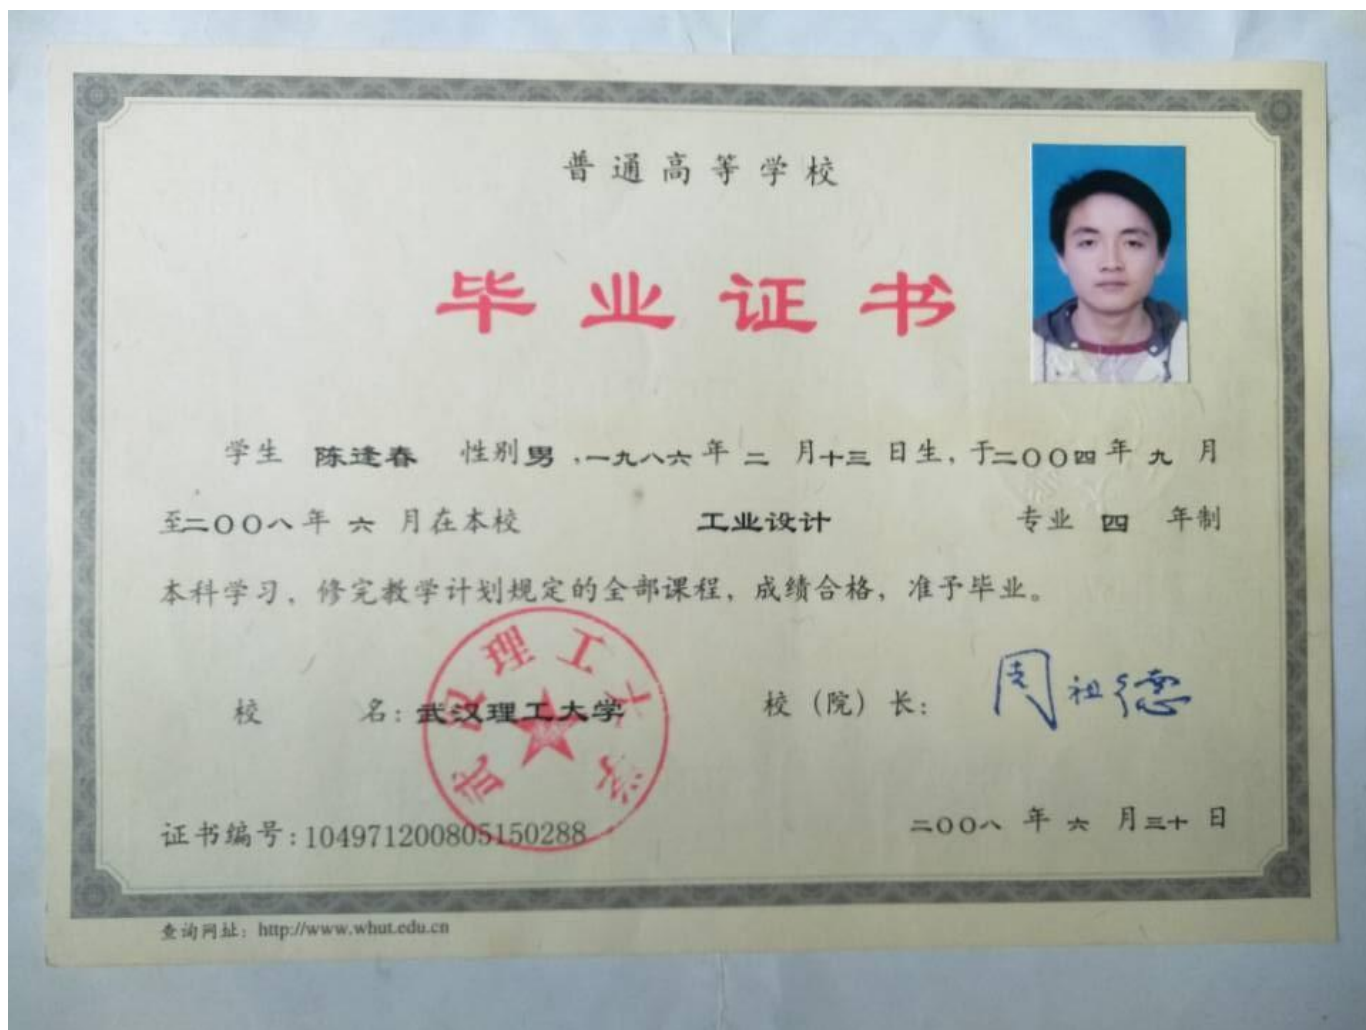 普通高等学校
毕业证书
学生 陈逢春 性别男，一九八六年二月十三日生，于二〇〇四年九月
至二〇〇八年六月在本校 工业设计 专业 四 年制
本科学习，修完教学计划规定的全部课程，成绩合格，准予毕业。
校 名：武汉理工大学 校（院）长：周祖德
武汉理工大学
证书编号：104971200805150288 二〇〇八年六月三十日
查询网址：http://www.whut.edu.cn